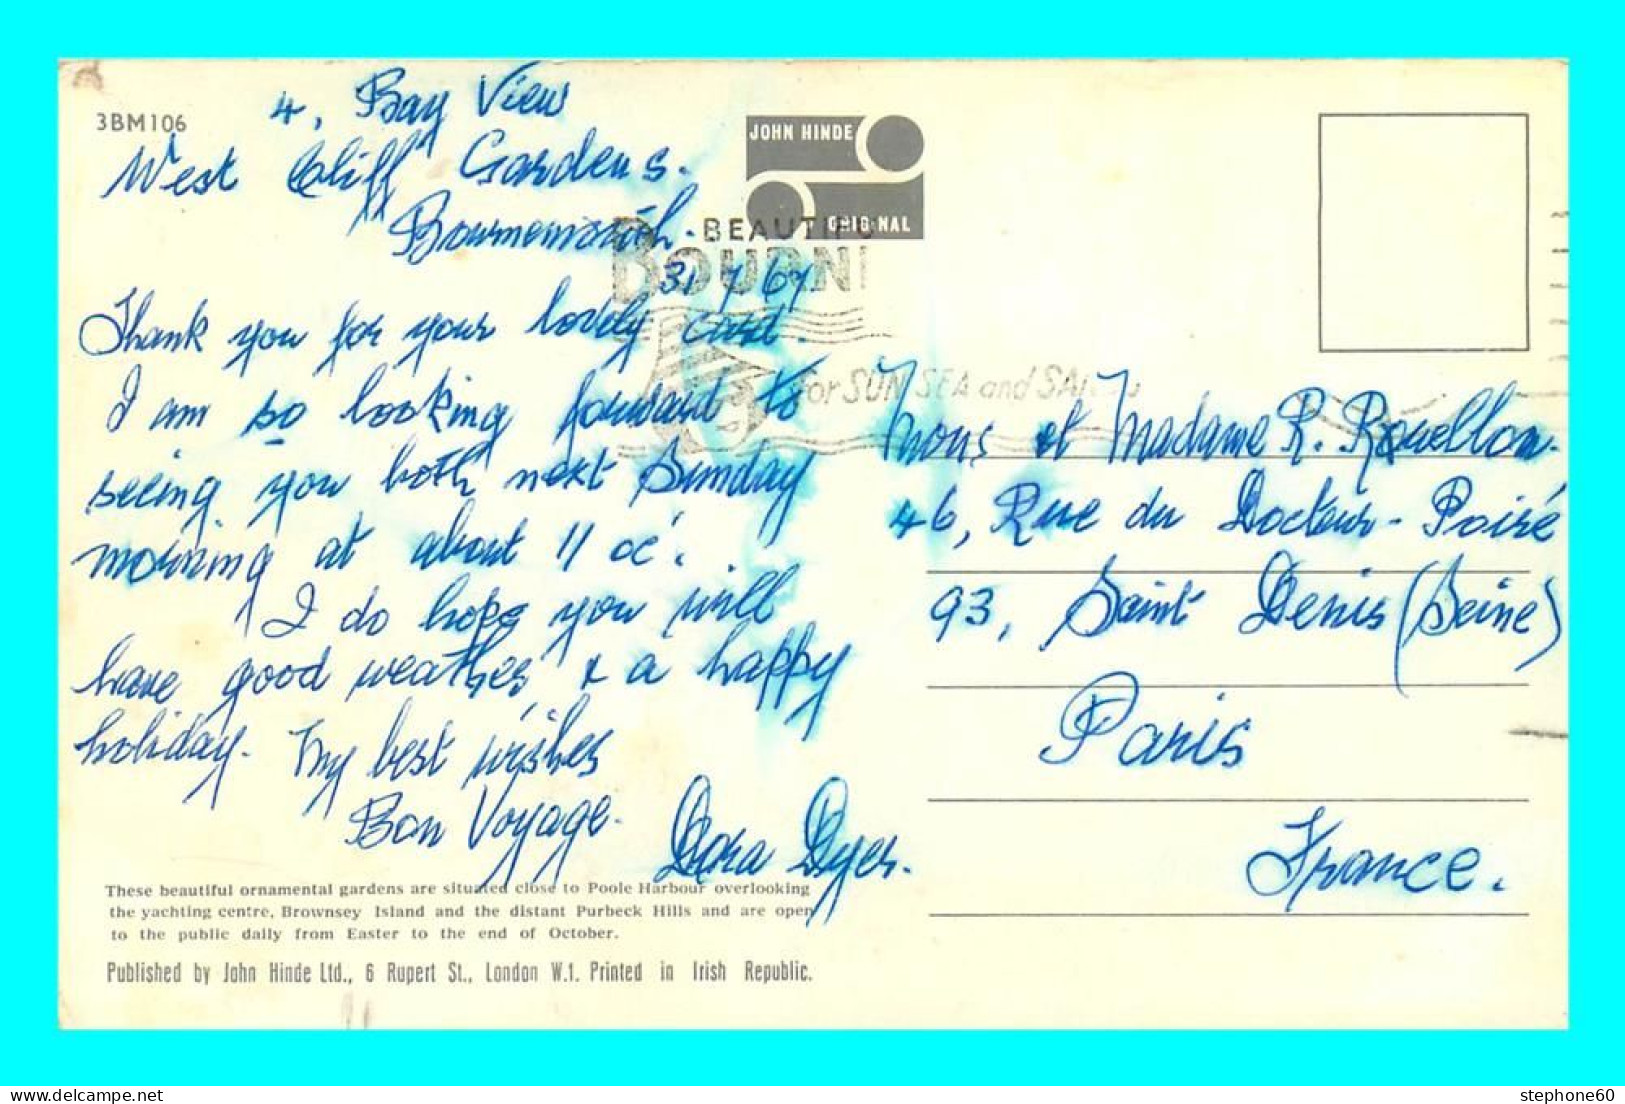 3BM106
4, Bay View
West Cliff Gardens.
Bournemouth.
31/7/67
JOHN HINDE
ORIGINAL
BEAUTIFU
BOURN
for SUN SEA and SAND
Thank you for your lovely card.
I am so looking forward to
seeing you both next Sunday
morning at about 11 oc'.
I do hope you will
have good weather & a happy
holiday. My best wishes
Bon Voyage.
Dora Dyer.
Mons et Madame R. Rouellon.
46, Rue du Docteur - Poiré
93, Saint Denis (Seine)
Paris
France.
These beautiful ornamental gardens are situated close to Poole Harbour overlooking
the yachting centre, Brownsey Island and the distant Purbeck Hills and are open
to the public daily from Easter to the end of October.
Published by John Hinde Ltd., 6 Rupert St., London W.1. Printed in Irish Republic.
stephone60